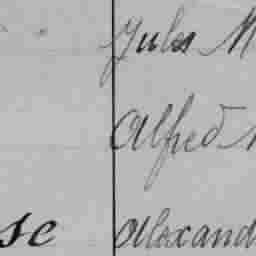 Jules M
Alfred
se Alexand